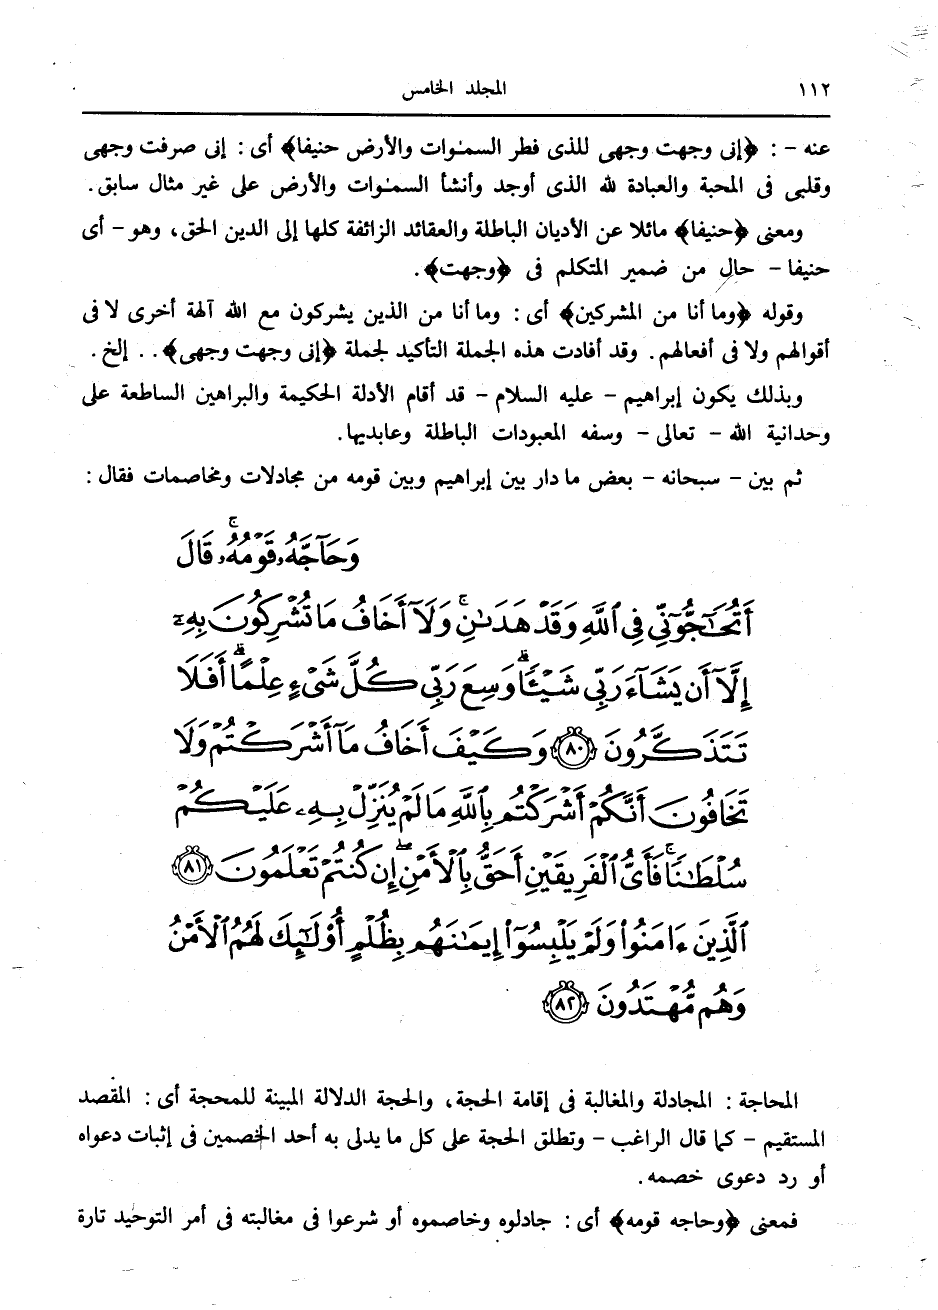 ١١٢
المجلد الخامس
عنه - : ﴿إنى وجهت وجهى للذى فطر السمـٰوات والأرض حنيفا﴾ أى : إنى صرفت وجهى
وقلبى فى المحبة والعبادة لله الذى أوجد وأنشأ السمـٰوات والأرض على غير مثال سابق .
ومعنى ﴿حنيفا﴾ مائلا عن الأديان الباطلة والعقائد الزائفة كلها إلى الدين الحق ، وهو - أى
حنيفا - حال من ضمير المتكلم فى ﴿وجهت﴾ .
وقوله ﴿وما أنا من المشركين﴾ أى : وما أنا من الذين يشركون مع الله آلهة أخرى لا فى
أقوالهم ولا فى أفعالهم . وقد أفادت هذه الجملة التأكيد لجملة ﴿إنى وجهت وجهى﴾ . . إلخ .
وبذلك يكون إبراهيم - عليه السلام - قد أقام الأدلة الحكيمة والبراهين الساطعة على
وحدانية الله - تعالى - وسفه المعبودات الباطلة وعابديها .
ثم بين - سبحانه - بعض ما دار بين إبراهيم وبين قومه من مجادلات ومخاصمات فقال :
وَحَآجَّهُۥ قَوْمُهُۥۚ قَالَ
أَتُحَٰٓجُّوٓنِّي فِي ٱللَّهِ وَقَدْ هَدَىٰنِۚ وَلَآ أَخَافُ مَا تُشْرِكُونَ بِهِۦٓ
إِلَّآ أَن يَشَآءَ رَبِّي شَيْـًٔاۗ وَسِعَ رَبِّي كُلَّ شَىْءٍ عِلْمًاۗ أَفَلَا
تَتَذَكَّرُونَ ۝٨٠ وَكَيْفَ أَخَافُ مَآ أَشْرَكْتُمْ وَلَا
تَخَافُونَ أَنَّكُمْ أَشْرَكْتُم بِٱللَّهِ مَا لَمْ يُنَزِّلْ بِهِۦ عَلَيْكُمْ
سُلْطَٰنًاۚ فَأَىُّ ٱلْفَرِيقَيْنِ أَحَقُّ بِٱلْأَمْنِۖ إِن كُنتُمْ تَعْلَمُونَ ۝٨١
ٱلَّذِينَ ءَامَنُوا۟ وَلَمْ يَلْبِسُوٓا۟ إِيمَٰنَهُم بِظُلْمٍ أُو۟لَٰٓئِكَ لَهُمُ ٱلْأَمْنُ
وَهُم مُّهْتَدُونَ ۝٨٢
المحاجة : المجادلة والمغالبة فى إقامة الحجة ، والحجة الدلالة المبينة للمحجة أى : المقصد
المستقيم - كما قال الراغب - وتطلق الحجة على كل ما يدلى به أحد الخصمين فى إثبات دعواه
أو رد دعوى خصمه .
فمعنى ﴿وحاجه قومه﴾ أى : جادلوه وخاصموه أو شرعوا فى مغالبته فى أمر التوحيد تارة